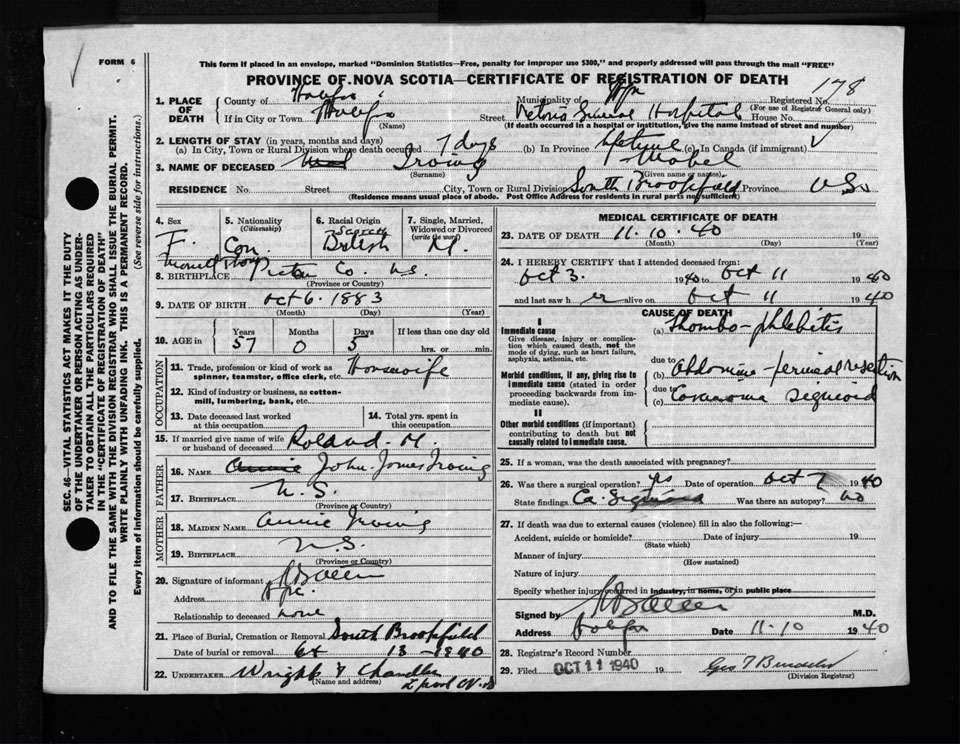 FORM 6
This form if placed in an envelope, marked "Dominion Statistics—Free, penalty for improper use $300," and properly addressed will pass through the mail "FREE"
PROVINCE OF NOVA SCOTIA—CERTIFICATE OF REGISTRATION OF DEATH
1. PLACE OF DEATH County of Halifax Municipality of Hfx Registered No. 178
(For use of Registrar General only)
If in City or Town Halifax Street Victoria General Hospital House No.
(Name) (If death occurred in a hospital or institution, give the name instead of street and number)
2. LENGTH OF STAY (in years, months and days)
(a) In City, Town or Rural Division where death occurred 7 days (b) In Province Lifetime (c) In Canada (if immigrant)
3. NAME OF DECEASED Irving Mabel
(Surname) (Given name or names)
RESIDENCE No. Street City, Town or Rural Division South Brookfield Province N.S.
(Residence means usual place of abode. Post Office Address for residents in rural parts not sufficient)
4. Sex F.
5. Nationality (Citizenship) Can.
6. Racial Origin British
7. Single, Married, Widowed or Divorced (write the word) M.
8. BIRTHPLACE Pictou Co. N.S.
(Province or Country)
9. DATE OF BIRTH Oct 6. 1883
(Month) (Day) (Year)
10. AGE in Years 57 Months 0 Days 5 If less than one day old hrs. or min.
OCCUPATION
11. Trade, profession or kind of work as spinner, teamster, office clerk, etc. Housewife
12. Kind of industry or business, as cotton-mill, lumbering, bank, etc.
13. Date deceased last worked at this occupation
14. Total yrs. spent in this occupation
15. If married give name of wife or husband of deceased Roland. M.
FATHER
16. NAME Annie John James Irving
17. BIRTHPLACE N.S.
(Province or Country)
MOTHER
18. MAIDEN NAME Annie Irving
19. BIRTHPLACE N.S.
(Province or Country)
20. Signature of informant
Address Hfx.
Relationship to deceased none
21. Place of Burial, Cremation or Removal South Brookfield
Date of burial or removal 13-1940
22. UNDERTAKER Wright & Chandler
(Name and address)
MEDICAL CERTIFICATE OF DEATH
23. DATE OF DEATH 11. 10. 40 19
(Month) (Day) (Year)
24. I HEREBY CERTIFY that I attended deceased from:
Oct 3. 1940 to Oct 11 1940
and last saw h er alive on Oct 11 1940
CAUSE OF DEATH
I
Immediate cause (a) Thombo-phlebitis
Give disease, injury or complication which caused death, not the mode of dying, such as heart failure, asphyxia, asthenia, etc.
due to
Morbid conditions, if any, giving rise to immediate cause (stated in order proceeding backwards from immediate cause).
(b) Abdomino-perineal resection
due to
(c) Carcinoma sigmoid
II
Other morbid conditions (if important) contributing to death but not causally related to immediate cause.
25. If a woman, was the death associated with pregnancy?
26. Was there a surgical operation? yes Date of operation Oct 7 1940
State findings Ca. Sigmoid Was there an autopsy? no
27. If death was due to external causes (violence) fill in also the following:—
Accident, suicide or homicide? Date of injury 19
(State which)
Manner of injury
(How sustained)
Nature of injury
Specify whether injury occurred in industry, in home, or in public place
Signed by M.D.
Address Halifax Date 11-10 1940
28. Registrar's Record Number
29. Filed OCT 11 1940 19
(Division Registrar)
SEC. 46—VITAL STATISTICS ACT MAKES IT THE DUTY
OF THE UNDERTAKER OR PERSON ACTING AS UNDERTAKER TO OBTAIN ALL THE PARTICULARS REQUIRED
IN THE "CERTIFICATE OF REGISTRATION OF DEATH"
AND TO FILE THE SAME WITH THE DIVISION REGISTRAR WHO SHALL ISSUE THE BURIAL PERMIT.
WRITE PLAINLY WITH UNFADING INK. THIS IS A PERMANENT RECORD.
Every item of information should be carefully supplied. (See reverse side for instructions.)